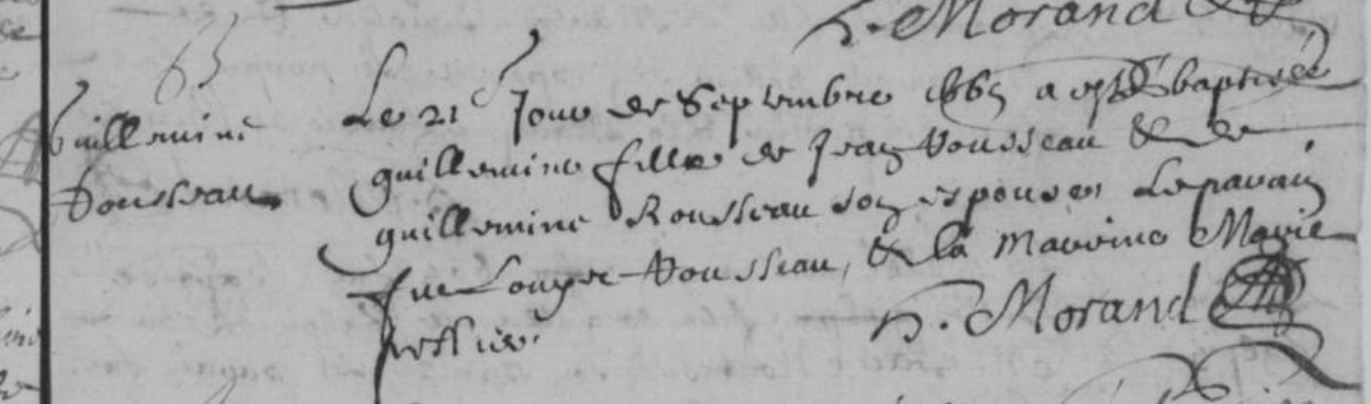 h. Morand
Guillemine
Vousseau
Le 21 Jour de Septembre 1665 a esté baptisée
guillemine fille de Jean Vousseau & de
guillemine Rousseau son espouse, Le parain
fut Louyse Vousseau, & la marrine Marie
h. Morand